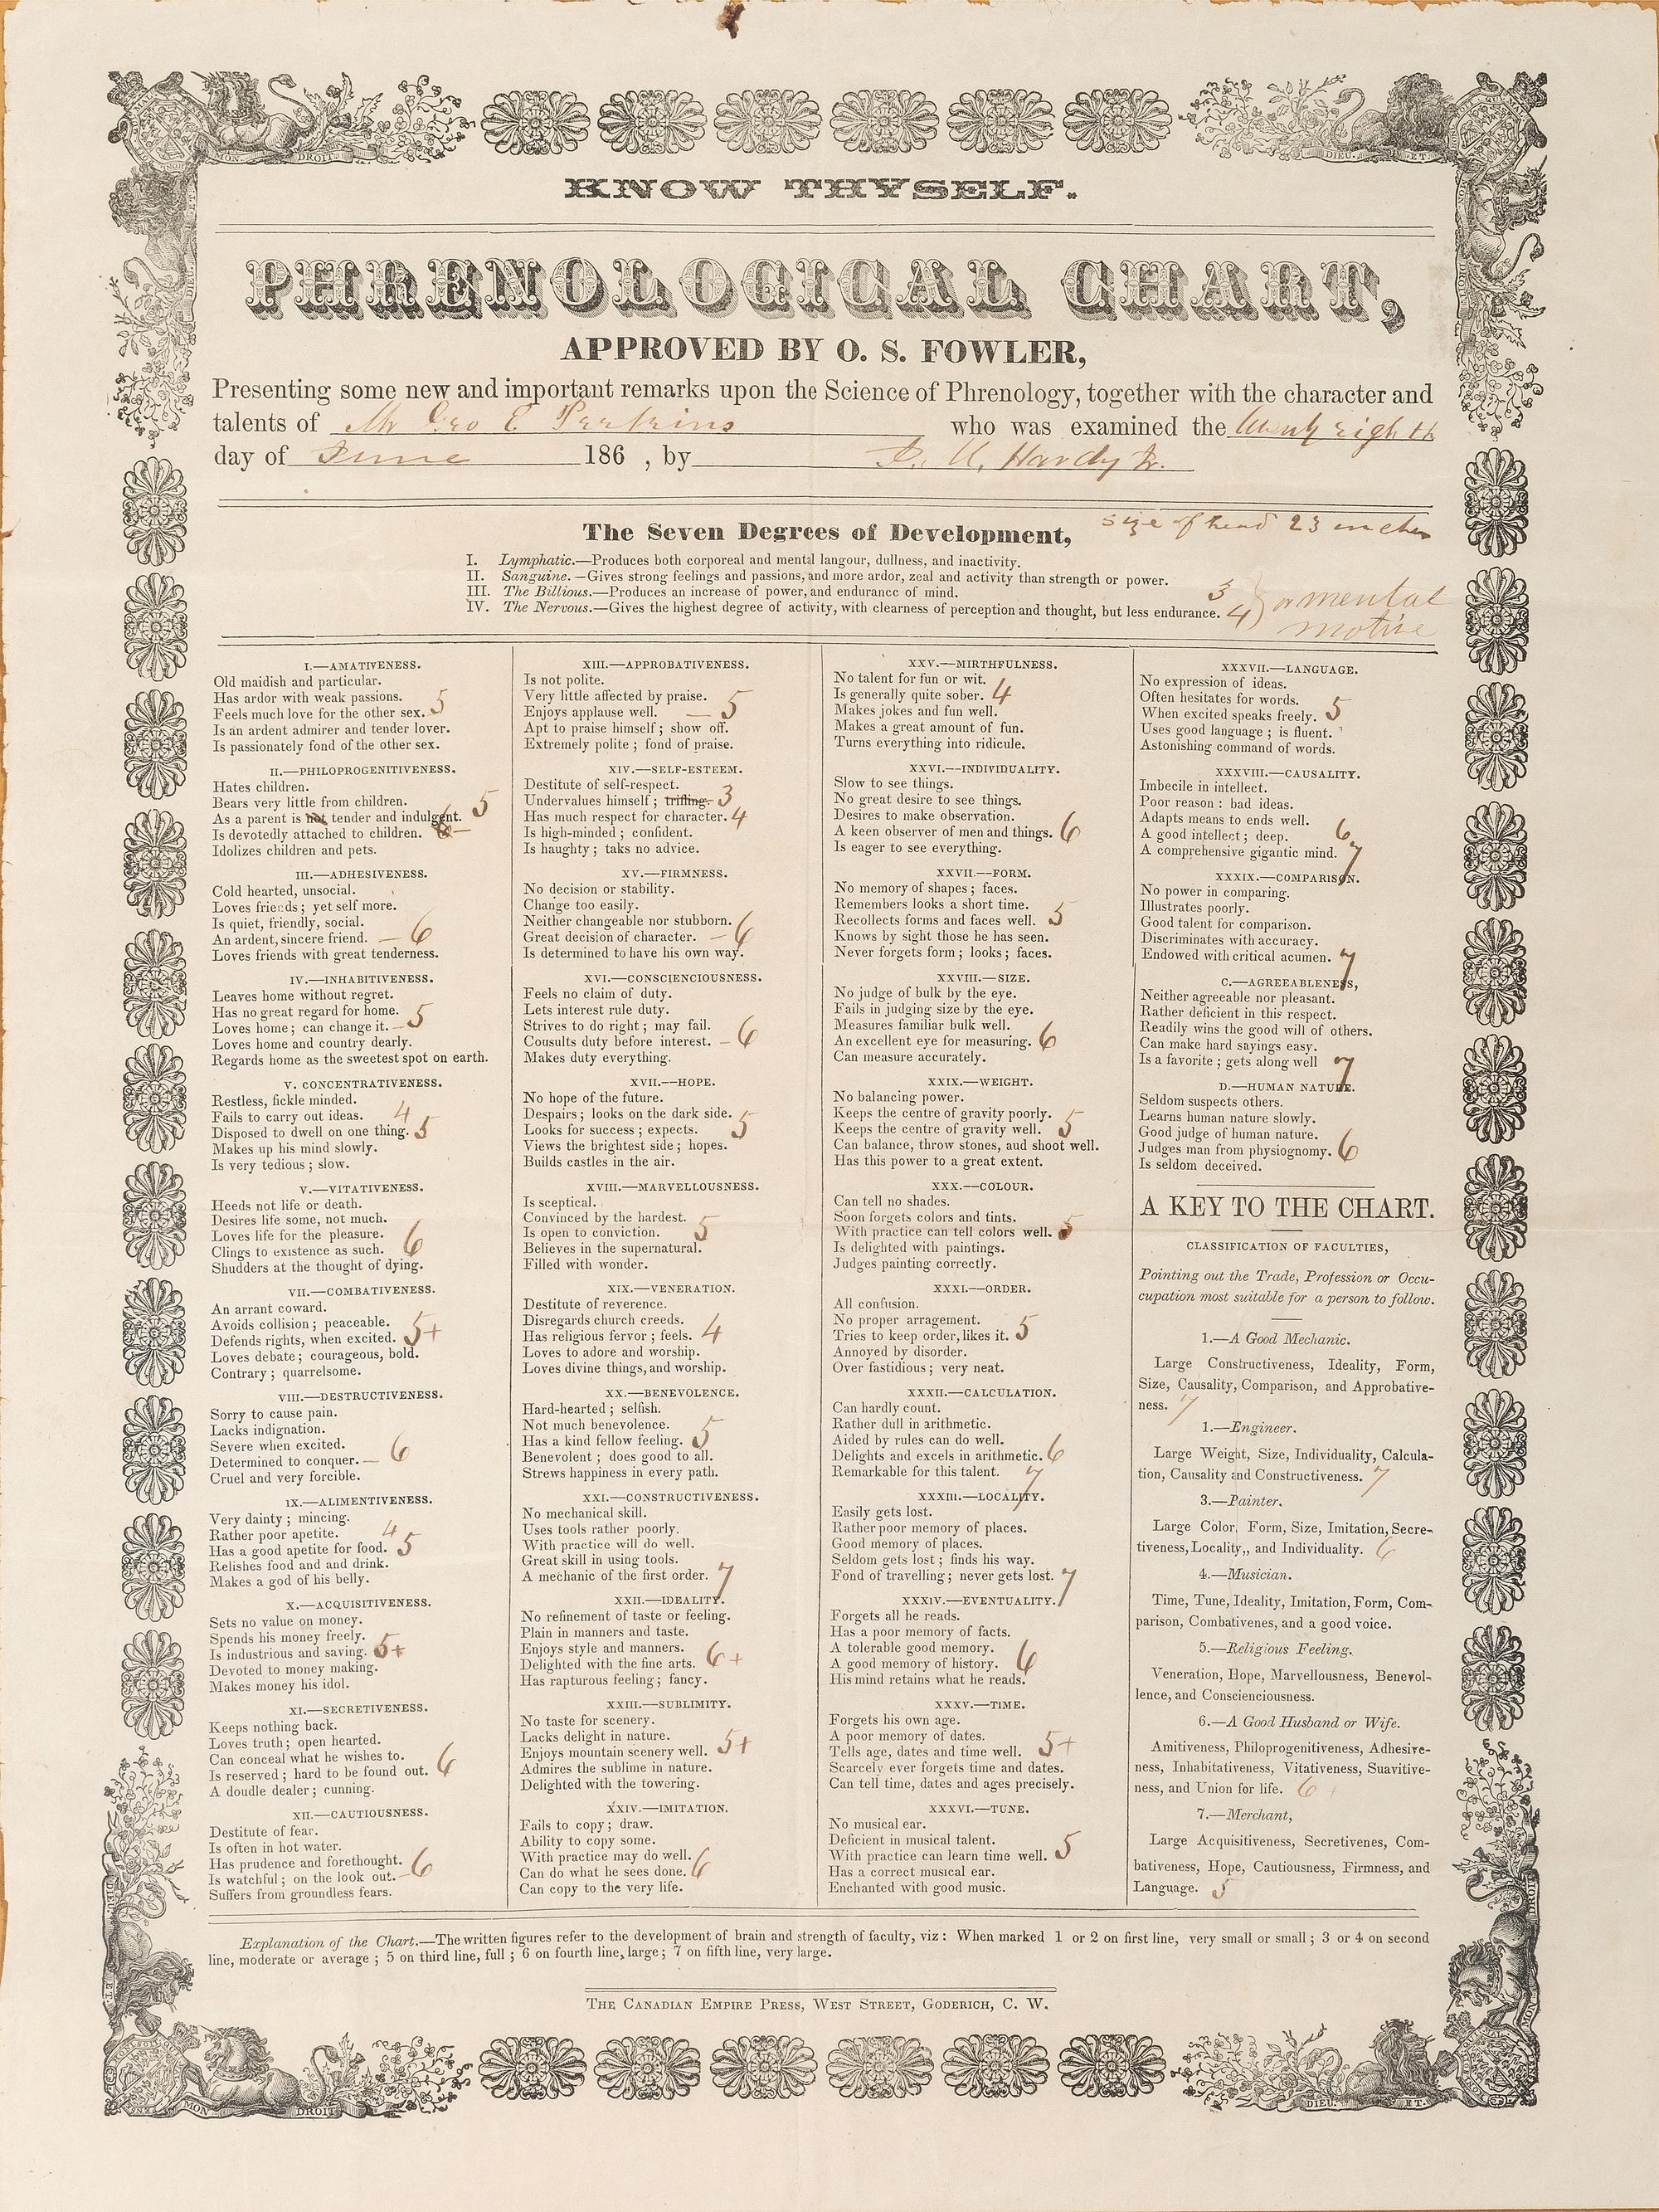 KNOW THYSELF.
PHRENOLOGICAL CHART,
APPROVED BY O. S. FOWLER,
Presenting some new and important remarks upon the Science of Phrenology, together with the character and
talents of Mr Geo E Perkins who was examined the twenty eighth
day of June 186 , by Hardy Jr.
The Seven Degrees of Development, size of head 23 inches
I. Lymphatic.—Produces both corporeal and mental langour, dullness, and inactivity.
II. Sanguine.—Gives strong feelings and passions, and more ardor, zeal and activity than strength or power.
III. The Billious.—Produces an increase of power, and endurance of mind. 3
IV. The Nervous.—Gives the highest degree of activity, with clearness of perception and thought, but less endurance. 4 } or mental
motive
I.—AMATIVENESS.
Old maidish and particular.
Has ardor with weak passions.
Feels much love for the other sex. 5
Is an ardent admirer and tender lover.
Is passionately fond of the other sex.
II.—PHILOPROGENITIVENESS.
Hates children.
Bears very little from children.
As a parent is not tender and indulgent. 5
Is devotedly attached to children.
Idolizes children and pets.
III.—ADHESIVENESS.
Cold hearted, unsocial.
Loves friends; yet self more.
Is quiet, friendly, social.
An ardent, sincere friend. — 6
Loves friends with great tenderness.
IV.—INHABITIVENESS.
Leaves home without regret.
Has no great regard for home.
Loves home; can change it. — 5
Loves home and country dearly.
Regards home as the sweetest spot on earth.
V. CONCENTRATIVENESS.
Restless, fickle minded.
Fails to carry out ideas. 4
Disposed to dwell on one thing. 5
Makes up his mind slowly.
Is very tedious; slow.
V.—VITATIVENESS.
Heeds not life or death.
Desires life some, not much.
Loves life for the pleasure.
Clings to existence as such. 6
Shudders at the thought of dying.
VII.—COMBATIVENESS.
An arrant coward.
Avoids collision; peaceable.
Defends rights, when excited. 5+
Loves debate; courageous, bold.
Contrary; quarrelsome.
VIII.—DESTRUCTIVENESS.
Sorry to cause pain.
Lacks indignation.
Severe when excited.
Determined to conquer. — 6
Cruel and very forcible.
IX.—ALIMENTIVENESS.
Very dainty; mincing.
Rather poor apetite. 4
Has a good apetite for food. 5
Relishes food and and drink.
Makes a god of his belly.
X.—ACQUISITIVENESS.
Sets no value on money.
Spends his money freely.
Is industrious and saving. 5+
Devoted to money making.
Makes money his idol.
XI.—SECRETIVENESS.
Keeps nothing back.
Loves truth; open hearted.
Can conceal what he wishes to.
Is reserved; hard to be found out. 6
A doudle dealer; cunning.
XII.—CAUTIOUSNESS.
Destitute of fear.
Is often in hot water.
Has prudence and forethought.
Is watchful; on the look out. — 6
Suffers from groundless fears.
XIII.—APPROBATIVENESS.
Is not polite.
Very little affected by praise.
Enjoys applause well. — 5
Apt to praise himself; show off.
Extremely polite; fond of praise.
XIV.—SELF-ESTEEM.
Destitute of self-respect.
Undervalues himself; trifling. 3
Has much respect for character. 4
Is high-minded; confident.
Is haughty; taks no advice.
XV.—FIRMNESS.
No decision or stability.
Change too easily.
Neither changeable nor stubborn.
Great decision of character. — 6
Is determined to have his own way.
XVI.—CONSCIENCIOUSNESS.
Feels no claim of duty.
Lets interest rule duty.
Strives to do right; may fail.
Cousults duty before interest. — 6
Makes duty everything.
XVII.—HOPE.
No hope of the future.
Despairs; looks on the dark side.
Looks for success; expects. 5
Views the brightest side; hopes.
Builds castles in the air.
XVIII.—MARVELLOUSNESS.
Is sceptical.
Convinced by the hardest.
Is open to conviction. 5
Believes in the supernatural.
Filled with wonder.
XIX.—VENERATION.
Destitute of reverence.
Disregards church creeds.
Has religious fervor; feels. 4
Loves to adore and worship.
Loves divine things, and worship.
XX.—BENEVOLENCE.
Hard-hearted; selfish.
Not much benevolence.
Has a kind fellow feeling. 5
Benevolent; does good to all.
Strews happiness in every path.
XXI.—CONSTRUCTIVENESS.
No mechanical skill.
Uses tools rather poorly.
With practice will do well.
Great skill in using tools.
A mechanic of the first order. 7
XXII.—IDEALITY.
No refinement of taste or feeling.
Plain in manners and taste.
Enjoys style and manners.
Delighted with the fine arts. 6+
Has rapturous feeling; fancy.
XXIII.—SUBLIMITY.
No taste for scenery.
Lacks delight in nature.
Enjoys mountain scenery well. 5+
Admires the sublime in nature.
Delighted with the towering.
XXIV.—IMITATION.
Fails to copy; draw.
Ability to copy some.
With practice may do well.
Can do what he sees done. 6
Can copy to the very life.
XXV.—MIRTHFULNESS.
No talent for fun or wit.
Is generally quite sober. 4
Makes jokes and fun well.
Makes a great amount of fun.
Turns everything into ridicule.
XXVI.—INDIVIDUALITY.
Slow to see things.
No great desire to see things.
Desires to make observation.
A keen observer of men and things. 6
Is eager to see everything.
XXVII.—FORM.
No memory of shapes; faces.
Remembers looks a short time.
Recollects forms and faces well. 5
Knows by sight those he has seen.
Never forgets form; looks; faces.
XXVIII.—SIZE.
No judge of bulk by the eye.
Fails in judging size by the eye.
Measures familiar bulk well.
An excellent eye for measuring. 6
Can measure accurately.
XXIX.—WEIGHT.
No balancing power.
Keeps the centre of gravity poorly.
Keeps the centre of gravity well. 5
Can balance, throw stones, aud shoot well.
Has this power to a great extent.
XXX.—COLOUR.
Can tell no shades.
Soon forgets colors and tints.
With practice can tell colors well. 5
Is delighted with paintings.
Judges painting correctly.
XXXI.—ORDER.
All confusion.
No proper arragement.
Tries to keep order, likes it. 5
Annoyed by disorder.
Over fastidious; very neat.
XXXII.—CALCULATION.
Can hardly count.
Rather dull in arithmetic.
Aided by rules can do well.
Delights and excels in arithmetic. 6
Remarkable for this talent. 7
XXXIII.—LOCALITY.
Easily gets lost.
Rather poor memory of places.
Good memory of places.
Seldom gets lost; finds his way.
Fond of travelling; never gets lost. 7
XXXIV.—EVENTUALITY.
Forgets all he reads.
Has a poor memory of facts.
A tolerable good memory.
A good memory of history. 6
His mind retains what he reads.
XXXV.—TIME.
Forgets his own age.
A poor memory of dates.
Tells age, dates and time well. 5+
Scarcely ever forgets time and dates.
Can tell time, dates and ages precisely.
XXXVI.—TUNE.
No musical ear.
Deficient in musical talent.
With practice can learn time well. 5
Has a correct musical ear.
Enchanted with good music.
XXXVII.—LANGUAGE.
No expression of ideas.
Often hesitates for words.
When excited speaks freely. 5
Uses good language; is fluent.
Astonishing command of words.
XXXVIII.—CAUSALITY.
Imbecile in intellect.
Poor reason: bad ideas.
Adapts means to ends well.
A good intellect; deep. 6
A comprehensive gigantic mind. 7
XXXIX.—COMPARISON.
No power in comparing.
Illustrates poorly.
Good talent for comparison.
Discriminates with accuracy.
Endowed with critical acumen. 7
C.—AGREEABLENESS,
Neither agreeable nor pleasant.
Rather deficient in this respect.
Readily wins the good will of others.
Can make hard sayings easy.
Is a favorite; gets along well 7
D.—HUMAN NATURE.
Seldom suspects others.
Learns human nature slowly.
Good judge of human nature.
Judges man from physiognomy. 6
Is seldom deceived.
A KEY TO THE CHART.
CLASSIFICATION OF FACULTIES,
Pointing out the Trade, Profession or Occu-
cupation most suitable for a person to follow.
1.—A Good Mechanic.
Large Constructiveness, Ideality, Form,
Size, Causality, Comparison, and Approbative-
ness. 7
1.—Engineer.
Large Weight, Size, Individuality, Calcula-
tion, Causality and Constructiveness. 7
3.—Painter.
Large Color, Form, Size, Imitation, Secre-
tiveness, Locality,, and Individuality. 6
4.—Musician.
Time, Tune, Ideality, Imitation, Form, Com-
parison, Combativenes, and a good voice.
5.—Religious Feeling.
Veneration, Hope, Marvellousness, Benevol-
lence, and Conscienciousness.
6.—A Good Husband or Wife.
Amitiveness, Philoprogenitiveness, Adhesive-
ness, Inhabitativeness, Vitativeness, Suavitive-
ness, and Union for life. 6 +
7.—Merchant,
Large Acquisitiveness, Secretivenes, Com-
bativeness, Hope, Cautiousness, Firmness, and
Language. 5
Explanation of the Chart.—The written figures refer to the development of brain and strength of faculty, viz: When marked 1 or 2 on first line, very small or small; 3 or 4 on second
line, moderate or average; 5 on third line, full; 6 on fourth line, large; 7 on fifth line, very large.
THE CANADIAN EMPIRE PRESS, WEST STREET, GODERICH, C. W.
MON DROIT
DIEU ET